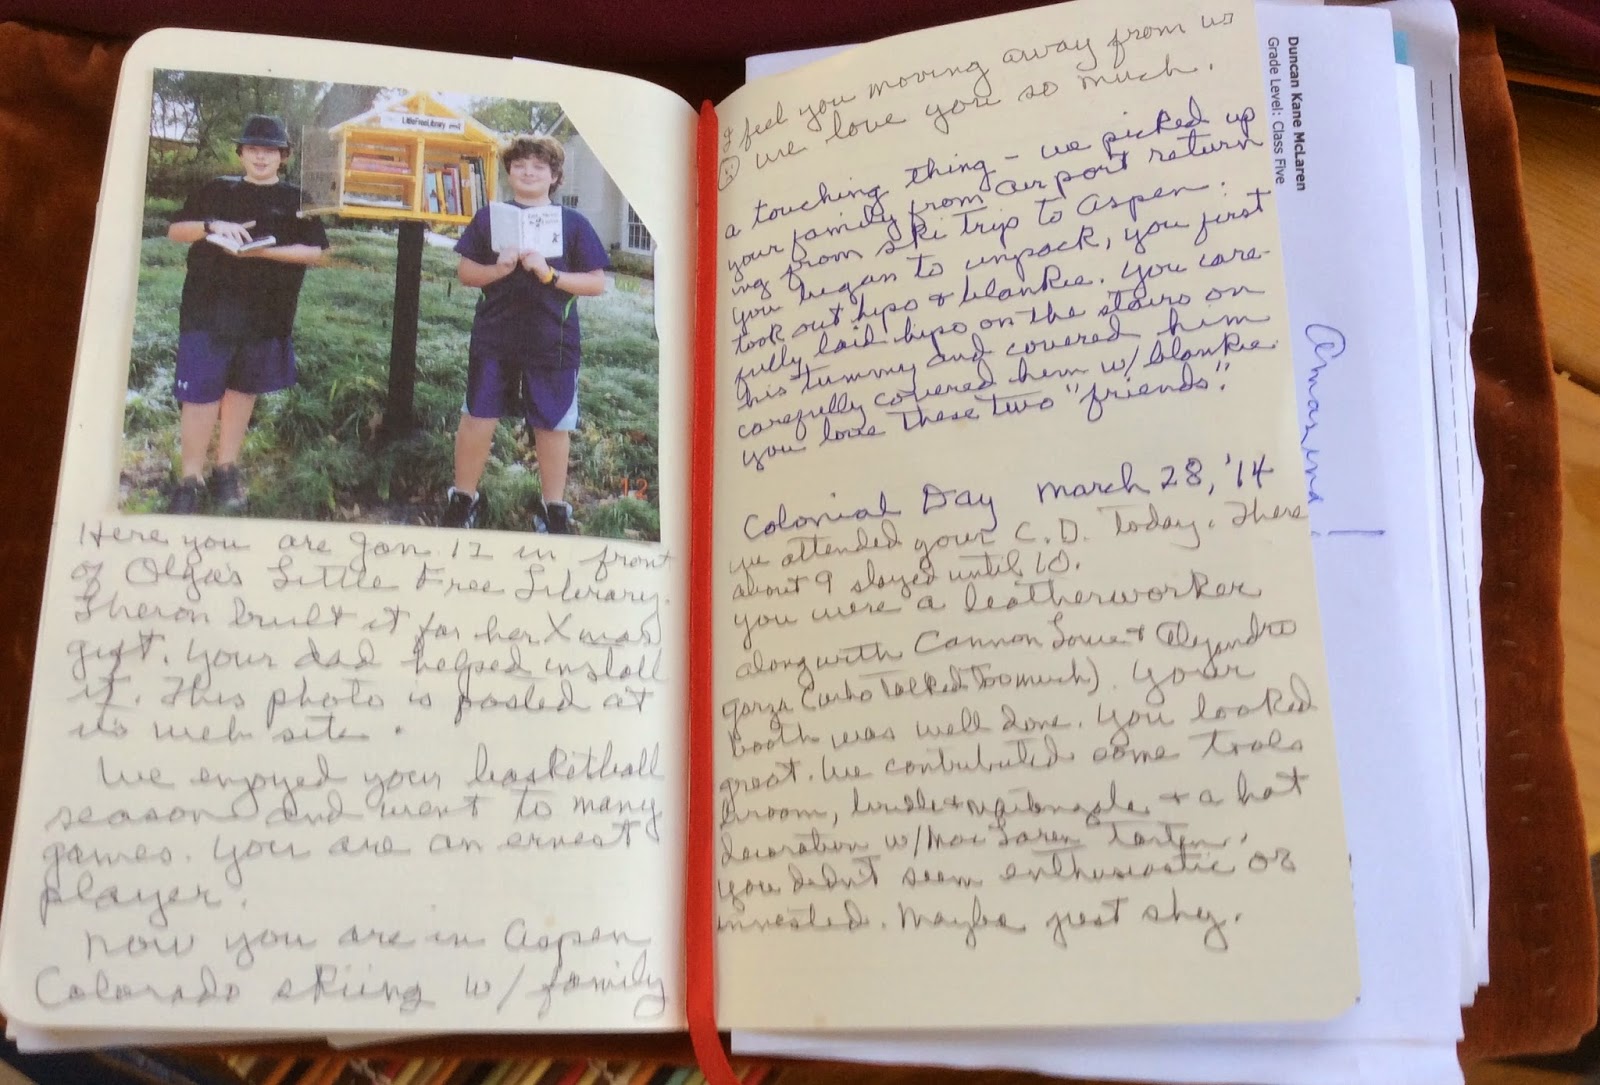 LittleFreeLibrary.org
'12
Here you are Jan 12 in front
of Olga's Little Free Library.
Theron built it for her Xmas
gift. Your dad helped install
it. This photo is posted at
its web site.
We enjoyed your basketball
season and went to many
games. You are an ernest
player.
Now you are in Aspen
Colorado skiing w/ family
I feel you moving away from us
we love you so much.
a touching thing - we picked up
your family from airport return
ing from ski trip to Aspen.
you began to unpack, you first
took out hipo & blankie. You care-
fully laid hipo on the stairs on
his tummy and covered him
carefully covered him w/ blankie.
you love these two "friends".
Colonial Day March 28, '14
we attended your C. D. today. There
about 9 stayed until 10.
you were a leatherworker
along with Cannon Lowe & Alejandro
Garza (who talked too much). Your
booth was well done. You looked
great. We contributed some tools
broom, bridle & & a hat
decoration w/ MacLaren tartan.
you didn't seem enthusiastic or
invested. Maybe just shy.
Duncan Kane McLaren
Grade Level: Class Five
Amazing!